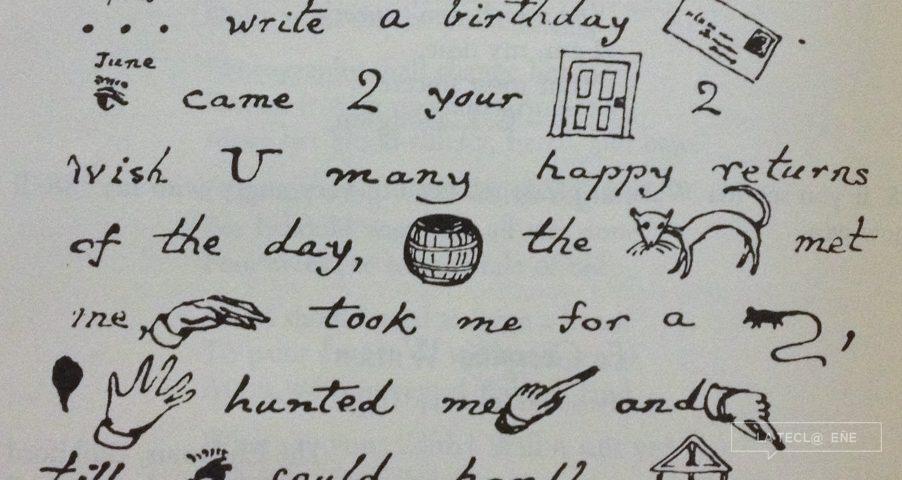 ... write a birthday .
June
came 2 your 2
wish U many happy returns
of the day, the met
me, took me for a ,
hunted me and
LA TECL@ EÑE
till could hardly